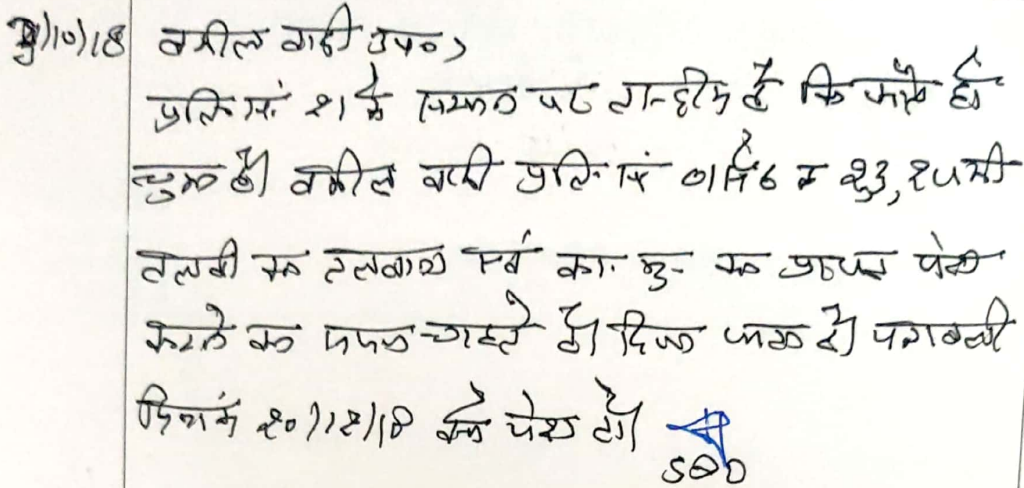 /10/18 वकील वादी उप०,
प्रति सं. २१ के पर तामील है कि फौत हो
चुका है। वकील वादी प्रति सं ०१ से ६ व २३, २५ की
तलबी का तलबाना एवं का. मु. का प्रा०पत्र पेश
करने का समय चाहते है। दिया जाता है। पत्रावली
दिनांक २०/१२/१८ को पेश हो।
SDO